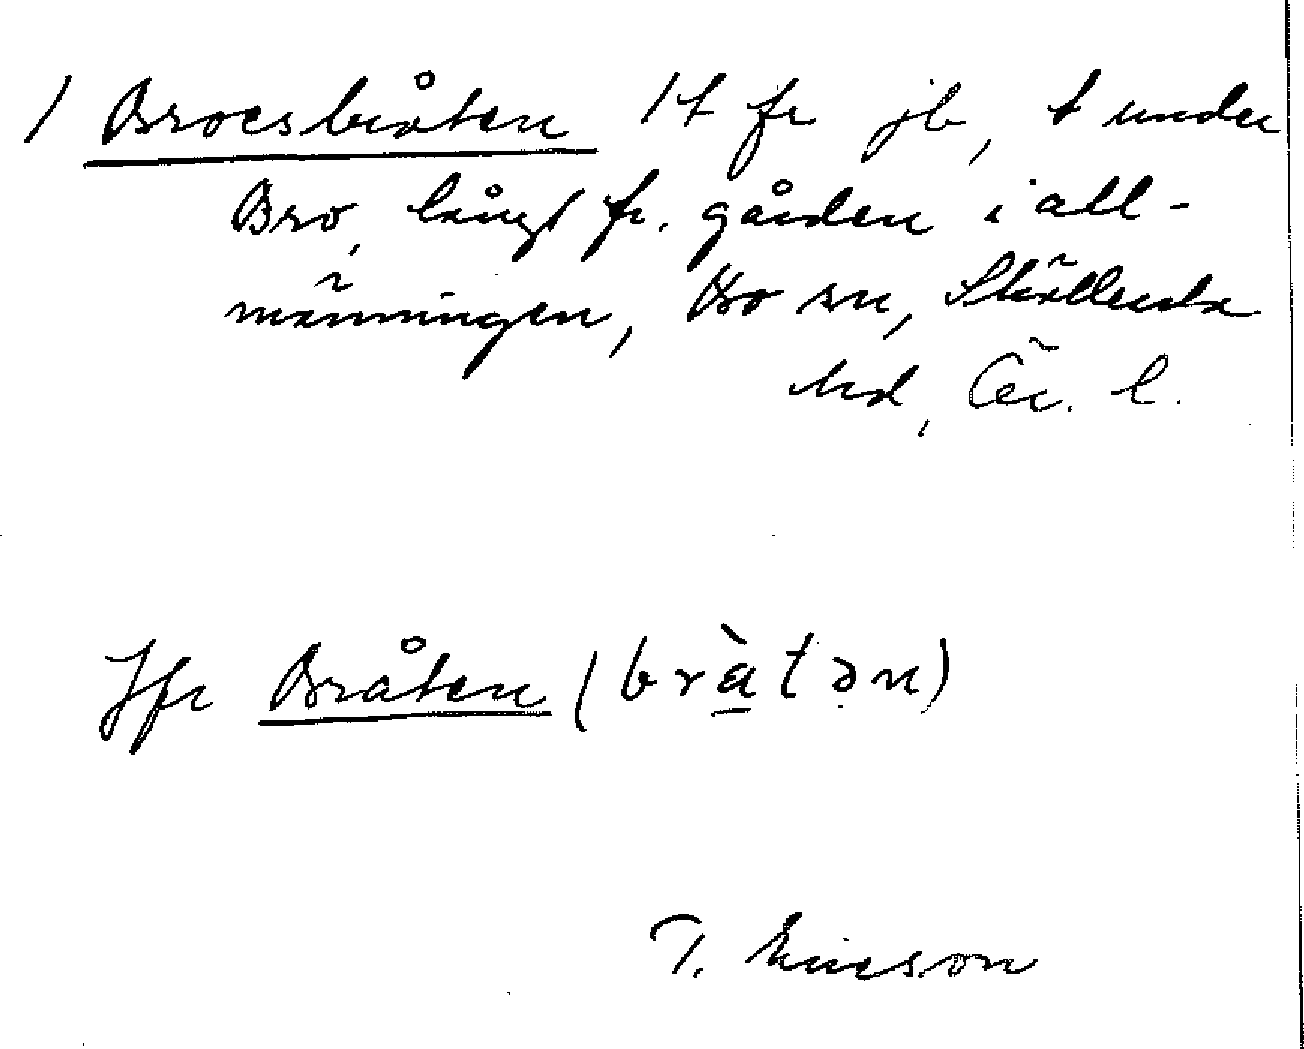 1 Broesbråten 1t fr jb, t under
Bro, långt fr. gården i all-
männingen, Bo sn, Skyllersta
hd, Ör. l.
Jfr Bråten (bràtən)
T. Ericson